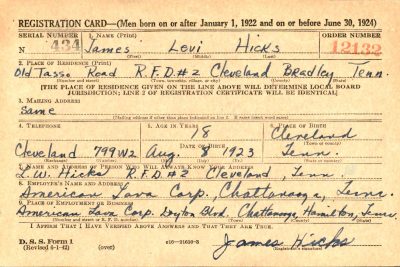 REGISTRATION CARD—(Men born on or after January 1, 1922 and on or before June 30, 1924)
SERIAL NUMBER 1. NAME (Print) ORDER NUMBER
N 434 James Levi Hicks 12132
(First) (Middle) (Last)
2. PLACE OF RESIDENCE (Print)
Old Tasso Road R.F.D.#2 Cleveland Bradley Tenn.
(Number and street) (Town, township, village, or city) (County) (State)
[THE PLACE OF RESIDENCE GIVEN ON THE LINE ABOVE WILL DETERMINE LOCAL BOARD
JURISDICTION; LINE 2 OF REGISTRATION CERTIFICATE WILL BE IDENTICAL]
3. MAILING ADDRESS
Same
[Mailing address if other than place indicated on line 2. If same insert word same]
4. TELEPHONE 5. AGE IN YEARS 6. PLACE OF BIRTH
18 Cleveland
DATE OF BIRTH
Cleveland 799W2 Aug. 8 1923 Tenn.
7. NAME AND ADDRESS OF PERSON WHO WILL ALWAYS KNOW YOUR ADDRESS
L.W. Hicks R.F.D#2 Cleveland, Tenn.
8. EMPLOYER'S NAME AND ADDRESS
American Lava Corp., Chattanooga, Tenn.
9. PLACE OF EMPLOYMENT OR BUSINESS
American Lava Corp. Dayton Blvd. Chattanooga, Hamilton, Tenn.
(Number and street or R. F. D. number) (Town) (County) (State)
I AFFIRM THAT I HAVE VERIFIED ABOVE ANSWERS AND THAT THEY ARE TRUE.
D. S. S. Form 1
(Revised 6-1-42) (over) c16—21630-3 James Hicks